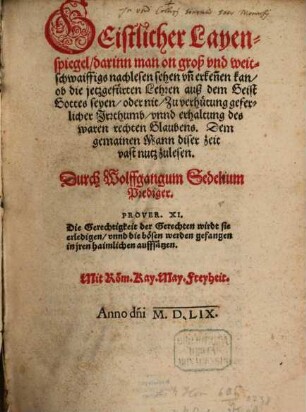 GEistlicher Layen-
spiegel/darinn man on groß vnd weit-
schwaiffigs nachlesen sehen vñ erkeñen kan/
ob die jetzgefürten Lehren auß dem Geist
Gottes seyen/oder nit/Zu verhütung gefer-
licher Irrthumb/vnnd erhaltung des
waren rechten Glaubens. Dem
gemainen Mann diser zeit
vast nutz zulesen.
Durch Wolffgangum Sedelium
Prediger.
PROVER. XI.
Die Gerechtigkeit der Gerechten wirdt sie
erledigen/vnnd die bösen werden gefangen
in jren haimlichen auffsätzen.
Mit Röm. Kay. May. Freyheit.
Anno dñi M. D. LIX.